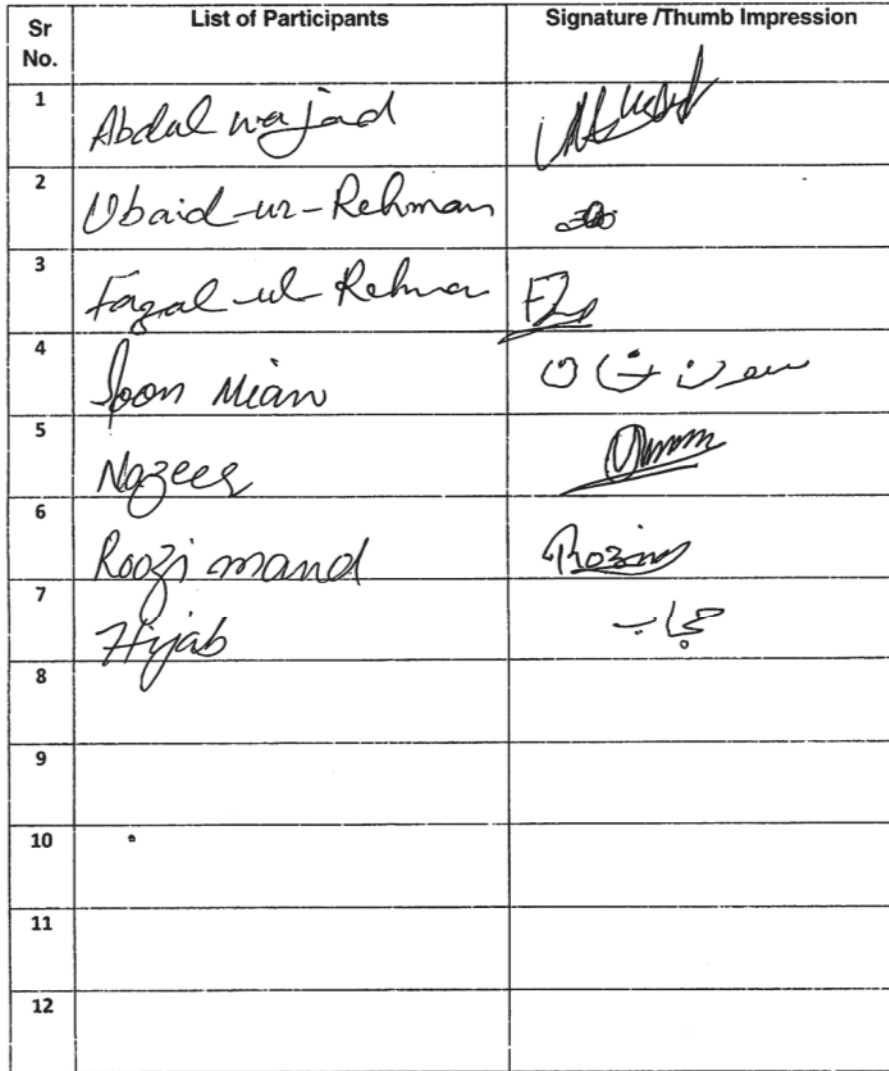 Sr No. List of Participants Signature /Thumb Impression
1 Abdul wajad
2 Ubaid-ur-Rehman
3 Fazal-ul-Rehma
4 Soon Mian
5 Nazeer
6 Roozi mand Rozim
7 Hijab حجاب
8
9
10
11
12